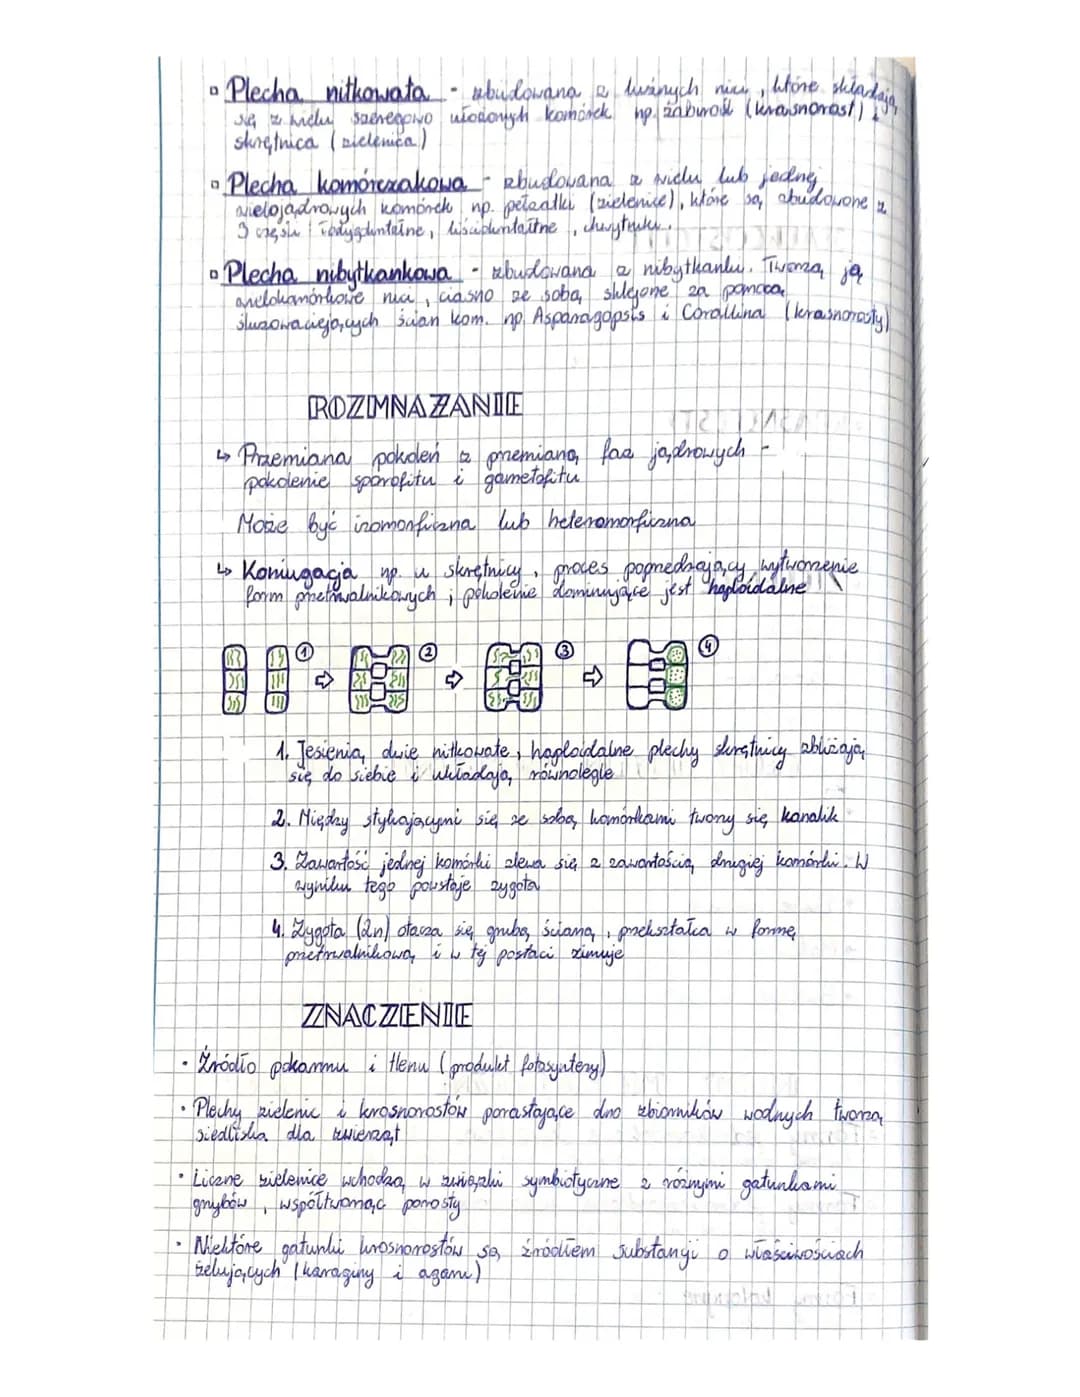 ▫ Plecha nitkowata - zbudowana z luźnych nici, które składają
się z wielu szeregowo ułożonych komórek np. żabirośl (krasnorost) i
skrętnica (zielenica)
▫ Plecha komórczakowa - zbudowana z wielu lub jednej
wielojądrowych komórek np. pełzatki (zielenice), które są zbudowane z
3 części: łodygokształtne, liściokształtne, chwytniki.
▫ Plecha nibytkankowa - zbudowana z nibytkanki. Tworzą ją
wielokomórkowe nici, ciasno ze sobą sklejone za pomocą
śluzowaciejących ścian kom. np. Asparagopsis i Corallina (krasnorosty)
ROZMNAŻANIE
↳ Przemiana pokoleń z przemianą faz jądrowych -
pokolenie sporofitu i gametofitu
Może być izomorficzna lub heteromorficzna
↳ Koniugacja np. u skrętnicy, proces poprzedzający wytworzenie
form przetrwalnikowych; pokolenie dominujące jest haploidalne
1 ⇨ 2 ⇨ 3 ⇨ 4
1. Jesienią dwie nitkowate, haploidalne plechy skrętnicy zbliżają
się do siebie i układają równolegle
2. Między stykającymi się ze sobą komórkami tworzy się kanalik
3. Zawartość jednej komórki zlewa się z zawartością drugiej komórki. W
wyniku tego powstaje zygota
4. Zygota (2n) otacza się grubą ścianą, przekształca w formę
przetrwalnikową i w tej postaci zimuje
ZNACZENIE
• Źródło pokarmu i tlenu (produkt fotosyntezy)
• Plechy zielenic i krasnorostów porastające dno zbiorników wodnych tworzą
siedliska dla zwierząt
• Liczne zielenice wchodzą w związki symbiotyczne z różnymi gatunkami
grzybów, współtworząc porosty
• Niektóre gatunki krasnorostów są źródłem substancji o właściwościach
żelujących (karaginy i agaru)